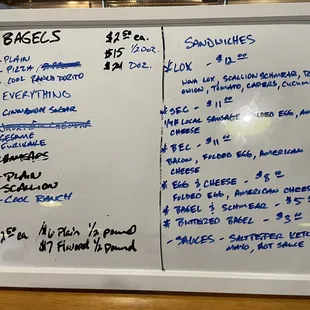 BAGELS $2.50 ea.
- PLAIN $15 1/2 DOZ.
- PIZZA / $24 DOZ.
- COOL RANCH DORITO
EVERYTHING
CINNAMON SUGAR
SESAME
FURIKAKE
SCHMEARS
- PLAIN
- SCALLION
- COOL RANCH
$6 Plain 1/2 pound
$7 Flavored 1/2 pound
SANDWICHES
* LOX - $12.00
NOVA LOX, SCALLION SCHMEAR,
ONION, TOMATO, CAPERS,
* SEC - $11.00
LOCAL SAUSAGE, FOLDED EGG,
CHEESE
* BEC - $11.00
BACON, FOLDED EGG, AMERICAN
CHEESE
* EGG & CHEESE - $8.00
FOLDED EGG, AMERICAN CHEESE
* BAGEL & SCHMEAR - $5
* BUTTERED BAGEL - $3.00
- SAUCES - SALT PEPPER
MAYO, HOT SAUCE